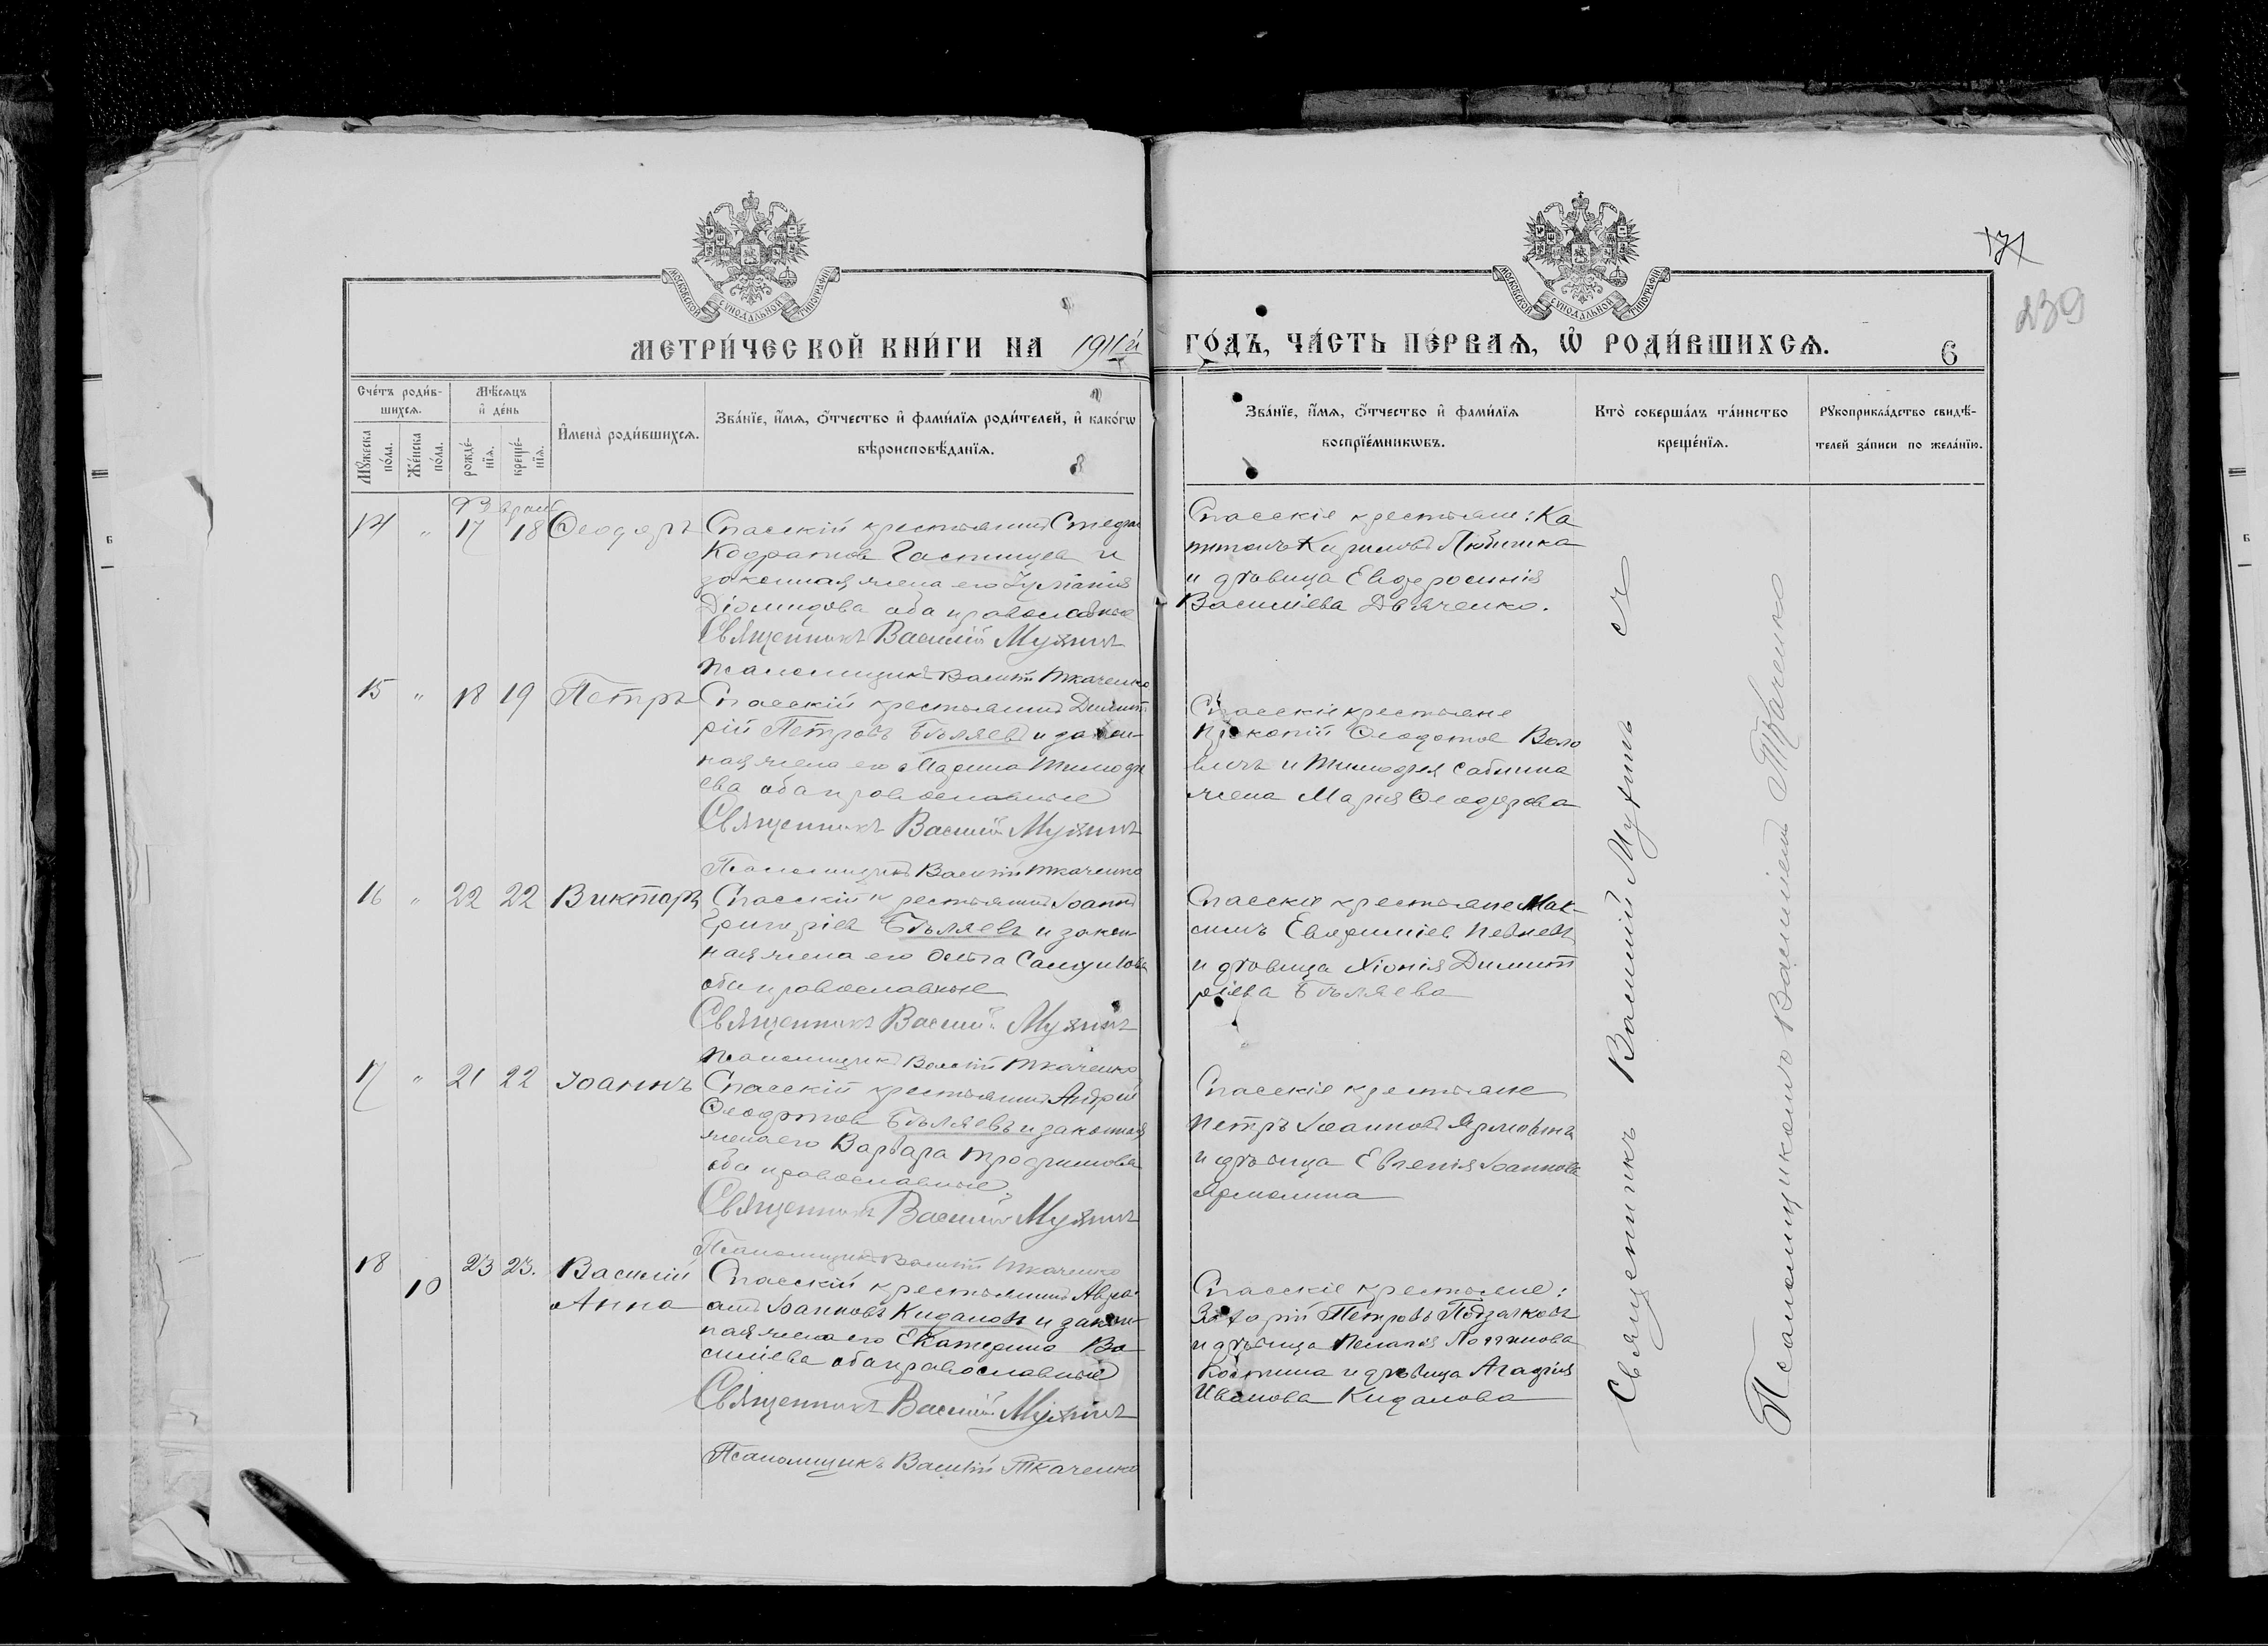 МОСКОВСКОЙ СѴНОДАЛЬНОЙ ТИПОГРАФІИ
МОСКОВСКОЙ СѴНОДАЛЬНОЙ ТИПОГРАФІИ
171
239
МЕТРИ́ЧЕСКОЙ КНИ́ГИ НА 1911й ГО́ДЪ, ЧА́СТЬ ПЕ́РВАѦ, Ѡ҆ РОДИ́ВШИХСѦ.
6
Сче́тъ роди́в-
шихсѧ.
Мѣ́сѧцъ
и҆ де́нь
Мꙋ́жеска по́ла.
Же́нска по́ла.
рожде́-
нїѧ.
креще́-
нїѧ.
И҆мена̀ роди́вшихсѧ.
Зва́нїе, и҆́мѧ, ѻ҆́тчество и҆ фами́лїѧ роди́телей, и҆ како́гѡ
вѣроисповѣ́данїѧ.
Зва́нїе, и҆́мѧ, ѻ҆́тчество и҆ фами́лїѧ
воспрїе́мникѡвъ.
Кто̀ соверша́лъ та́инство
креще́нїѧ.
Рꙋкоприкла́дство свидѣ́-
телей за́писи по жела́нїю.
Февраль
14 " 17 18 Ѳеодоръ Спасскій крестьянинъ
и
законная жена его
Діомидова оба православные
Священникъ Василій Мухинъ
Псаломщикъ Василій Ткаченко
Спасскіе крестьяне: Ка
питонъ Кириловъ
и дѣвица Евфросинія
Васильева Дьяченко.
15 " 18 19 Петръ Спасскій крестьянинъ Димит
рій Петровъ Бѣляевъ и закон-
ная жена его Марина Тимофе
ева оба православные
Священникъ Василій Мухинъ
Псаломщикъ Василій Ткаченко
Спасскіе крестьяне
Прокопій Ѳеодотов Воло
и Тимофея
жена Марія Ѳеодорова
16 " 22 22 Викторъ Спасскій крестьянинъ Іоаннъ
Григоріев Бѣляевъ и закон-
ная жена его
оба православные
Священникъ Василій Мухинъ
Псаломщикъ Василій Ткаченко
Спасскіе крестьяне Мак-
симъ
и дѣвица Хіонія Димит
ріева Бѣляева
17 " 21 22 Іоаннъ Спасскій крестьянинъ Андрей
Бѣляевъ и законная
жена его Варвара Трофимова
оба православные
Священникъ Василій Мухинъ
Псаломщикъ Василій Ткаченко
Спасскіе крестьяне
Петръ Іоанновъ
и дѣвица Евгенія Іоаннова
18 10 23 23. Василій Спасскій крестьянинъ Авра
Анна амъ Іоанновъ Кидаловъ и закон-
ная жена его Екатерина Ва
сильева оба православные
Священникъ Василій Мухинъ
Псаломщикъ Василій Ткаченко
Спасскіе крестьяне:
Петровъ
и дѣвица Пелагія
и дѣвица Агафія
Иванова Кидалова
Священникъ Василій Мухинъ съ
Псаломщикомъ Василіемъ Ткаченко